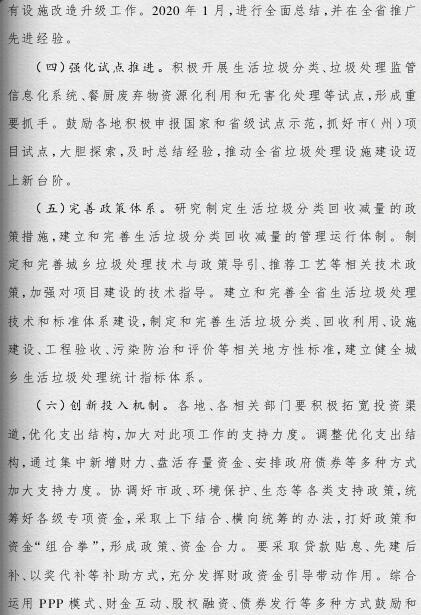 有设施改造升级工作。2020 年 1 月,进行全面总结,并在全省推广
先进经验。
（四）强化试点推进。积极开展生活垃圾分类、垃圾处理监管
信息化系统、餐厨废弃物资源化利用和无害化处理等试点,形成重
要抓手。鼓励各地积极申报国家和省级试点示范,抓好市(州)项
目试点,大胆探索,及时总结经验,推动全省垃圾处理设施建设迈
上新台阶。
（五）完善政策体系。研究制定生活垃圾分类回收减量的政
策措施,建立和完善生活垃圾分类回收减量的管理运行体制。制
定和完善城乡垃圾处理技术与政策导引、推荐工艺等相关技术政
策,加强对项目建设的技术指导。建立和完善全省生活垃圾处理
技术和标准体系建设,制定和完善生活垃圾分类、回收利用、设施
建设、工程验收、污染防治和评价等相关地方性标准,建立健全城
乡生活垃圾处理统计指标体系。
（六）创新投入机制。各地、各相关部门要积极拓宽投资渠
道,优化支出结构,加大对此项工作的支持力度。调整优化支出结
构,通过集中新增财力、盘活存量资金、安排政府债券等多种方式
加大支持力度。协调好市政、环境保护、生态等各类支持政策,统
筹好各级专项资金,采取上下结合、横向统筹的办法,打好政策和
资金“组合拳”,形成政策、资金合力。要采取贷款贴息、先建后
补、以奖代补等补助方式,充分发挥财政资金引导带动作用。综合
运用 PPP 模式、财金互动、股权融资、债券发行等多种方式鼓励和